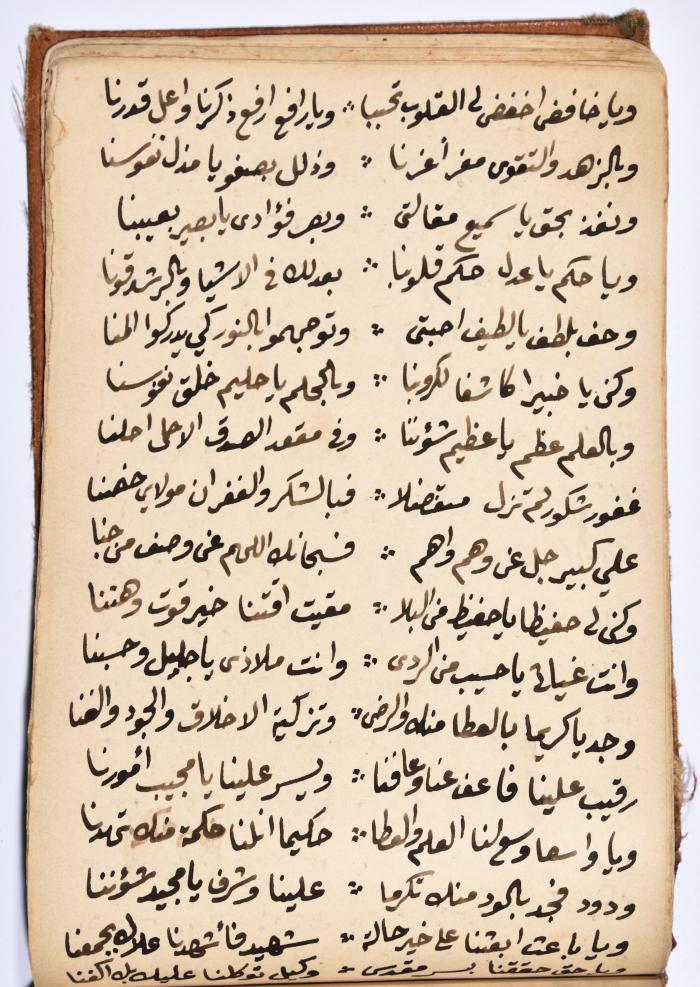 ويا خافض اخفض لى القلوب تحببا ∴ ويا رافع ارفع ذكرنا واعل قدرنا
وبالزهد والتقوى معز أعزنا ∴ وذلل بصفو يا مذل نفوسنا
ونفذ بحق يا سميع مقالتى ∴ وبصر فؤادى يا بصير بعيبنا
ويا حكم يا عدل حكم قلوبنا ∴ بعدلك فى الاشيا وبالرشد قونا
وحف بلطف يا لطيف احبتى ∴ وتوجهموا بالنور كي يدركوا المنا
وكن يا خبيرا كاشفا لكروبنا ∴ وبالحلم يا حليم خلق نفوسنا
وبالعلم عظم يا عظيم شؤننا ∴ وفى مقعد الصدق الاجل احلنا
غفور شكور لم تزل متفضلا ∴ فبالشكر والغفران مولاي خصنا
علي كبير جل عن وهم واهم ∴ فسبحانك اللهم عن وصف من جنا
وكن لى حفيظا يا حفيظ من البلا ∴ مقيت اقتنا خير قوت وهننا
وانت غياثى يا حسيب من الردى ∴ وانت ملاذى يا جليل وحسبنا
وجد يا كريما بالعطا منك والرضى ∴ وتزكية الاخلاق والجود والغنا
رقيب علينا فاعف عنا وعافنا ∴ ويسر علينا يا مجيب أمورنا
ويا واسعا وسع لنا العلم والعطا ∴ حكيما انلنا حكمة منك تهدنا
ودود فجد بالود منك تكرما ∴ علينا وشرف يا مجيد شؤننا
ويا باعث ابعثنا على خير حالة ∴ شهيد فأشهدنا علاك بجمعنا
ويا حق حققنا بسر مقدس ∴ وكيل توكلنا عليك بك اكفنا